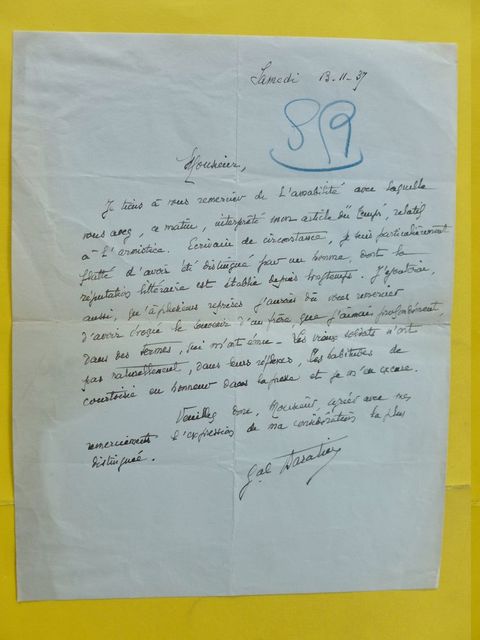 Samedi 13-11-37
Monsieur,
Je tiens à vous remercier de l'amabilité avec laquelle
vous avez, ce matin, interprété mon article du Temps, relatif
à l'armistice. Ecrivain de circonstance, je suis particulièrement
flatté d'avoir été distingué par un homme, dont la
réputation littéraire est établie depuis longtemps. J'ajouterai,
aussi, qu'à plusieurs reprises j'aurais dû vous remercier
d'avoir évoqué le souvenir d'un frère, que j'aimais profondément,
dans des termes, qui m'ont ému. Les vieux soldats n'ont
pas naturellement, dans leurs réflexes, les habitudes de
courtoisie en honneur dans la presse et je m'en excuse.
Veuillez donc, Monsieur, agréer avec mes
remerciements l'expression de ma considération la plus
distinguée.
Gal